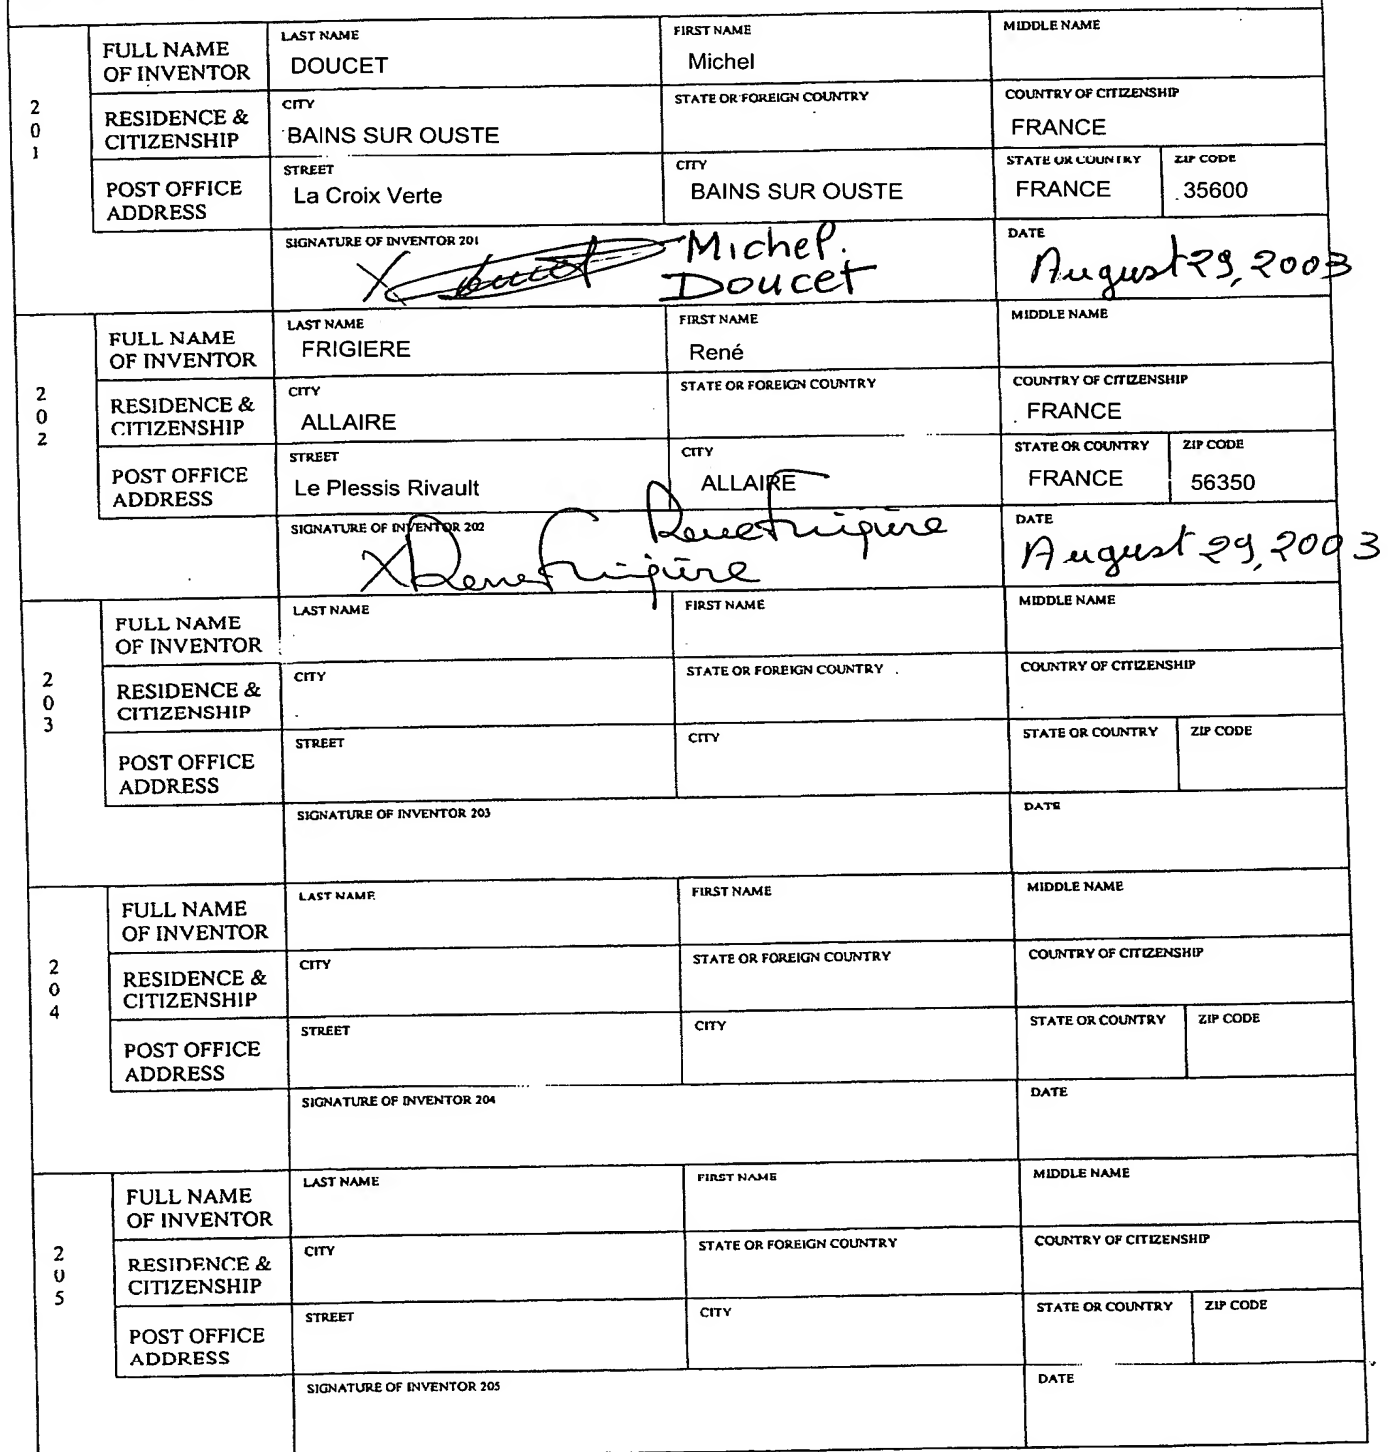 201
FULL NAME OF INVENTOR
LAST NAME
DOUCET
FIRST NAME
Michel
MIDDLE NAME
RESIDENCE & CITIZENSHIP
CITY
BAINS SUR OUSTE
STATE OR FOREIGN COUNTRY
COUNTRY OF CITIZENSHIP
FRANCE
POST OFFICE ADDRESS
STREET
La Croix Verte
CITY
BAINS SUR OUSTE
STATE OR COUNTRY
FRANCE
ZIP CODE
35600
SIGNATURE OF INVENTOR 201
X Doucet
Michel.
Doucet
DATE
August 29, 2003
202
FULL NAME OF INVENTOR
LAST NAME
FRIGIERE
FIRST NAME
René
MIDDLE NAME
RESIDENCE & CITIZENSHIP
CITY
ALLAIRE
STATE OR FOREIGN COUNTRY
COUNTRY OF CITIZENSHIP
FRANCE
POST OFFICE ADDRESS
STREET
Le Plessis Rivault
CITY
ALLAIRE
STATE OR COUNTRY
FRANCE
ZIP CODE
56350
SIGNATURE OF INVENTOR 202
X Rene Frigière
Rene Frigière
DATE
August 29, 2003
203
FULL NAME OF INVENTOR
LAST NAME
FIRST NAME
MIDDLE NAME
RESIDENCE & CITIZENSHIP
CITY
STATE OR FOREIGN COUNTRY
COUNTRY OF CITIZENSHIP
POST OFFICE ADDRESS
STREET
CITY
STATE OR COUNTRY
ZIP CODE
SIGNATURE OF INVENTOR 203
DATE
204
FULL NAME OF INVENTOR
LAST NAME
FIRST NAME
MIDDLE NAME
RESIDENCE & CITIZENSHIP
CITY
STATE OR FOREIGN COUNTRY
COUNTRY OF CITIZENSHIP
POST OFFICE ADDRESS
STREET
CITY
STATE OR COUNTRY
ZIP CODE
SIGNATURE OF INVENTOR 204
DATE
205
FULL NAME OF INVENTOR
LAST NAME
FIRST NAME
MIDDLE NAME
RESIDENCE & CITIZENSHIP
CITY
STATE OR FOREIGN COUNTRY
COUNTRY OF CITIZENSHIP
POST OFFICE ADDRESS
STREET
CITY
STATE OR COUNTRY
ZIP CODE
SIGNATURE OF INVENTOR 205
DATE